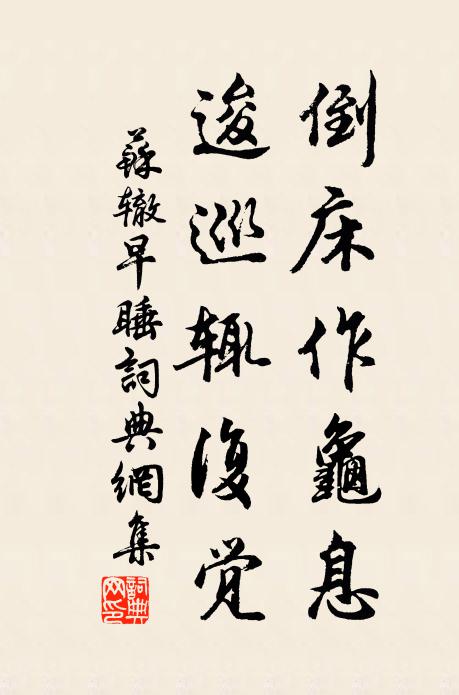 倒床作龜息
逡巡辄復觉
蘇辙早睡詞典網集
詞典网印